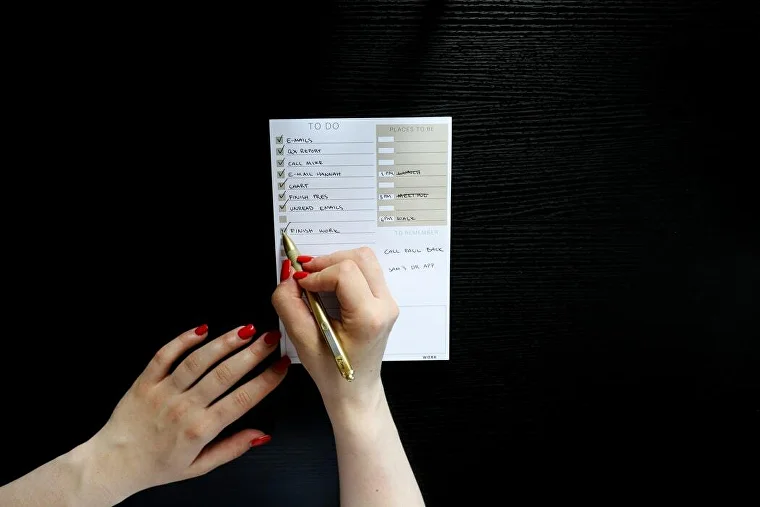 TO DO
E-MAILS
QX REPORT
CALL MIKE
E-MAIL HANNAH
CHART
FINISH PRES
UNREAD EMAILS
FINISH WORK
PLACES TO BE
1 PM LUNCH
3 PM MEETING
6 PM WALK
TO REMEMBER
CALL PAUL BACK
SAM'S DR APP.
WORK